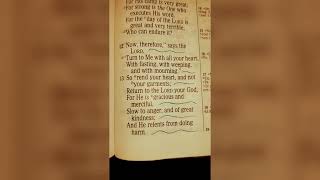 For His camp is very great;
For strong is the One who
executes His word.
For the day of the LORD is
great and very terrible;
Who can endure it?
12 "Now, therefore," says the
LORD,
"Turn to Me with all your heart,
With fasting, with weeping,
and with mourning."
13 So rend your heart, and not
your garments;
Return to the LORD your God,
For He is gracious and
merciful,
Slow to anger, and of great
kindness;
And He relents from doing
harm.